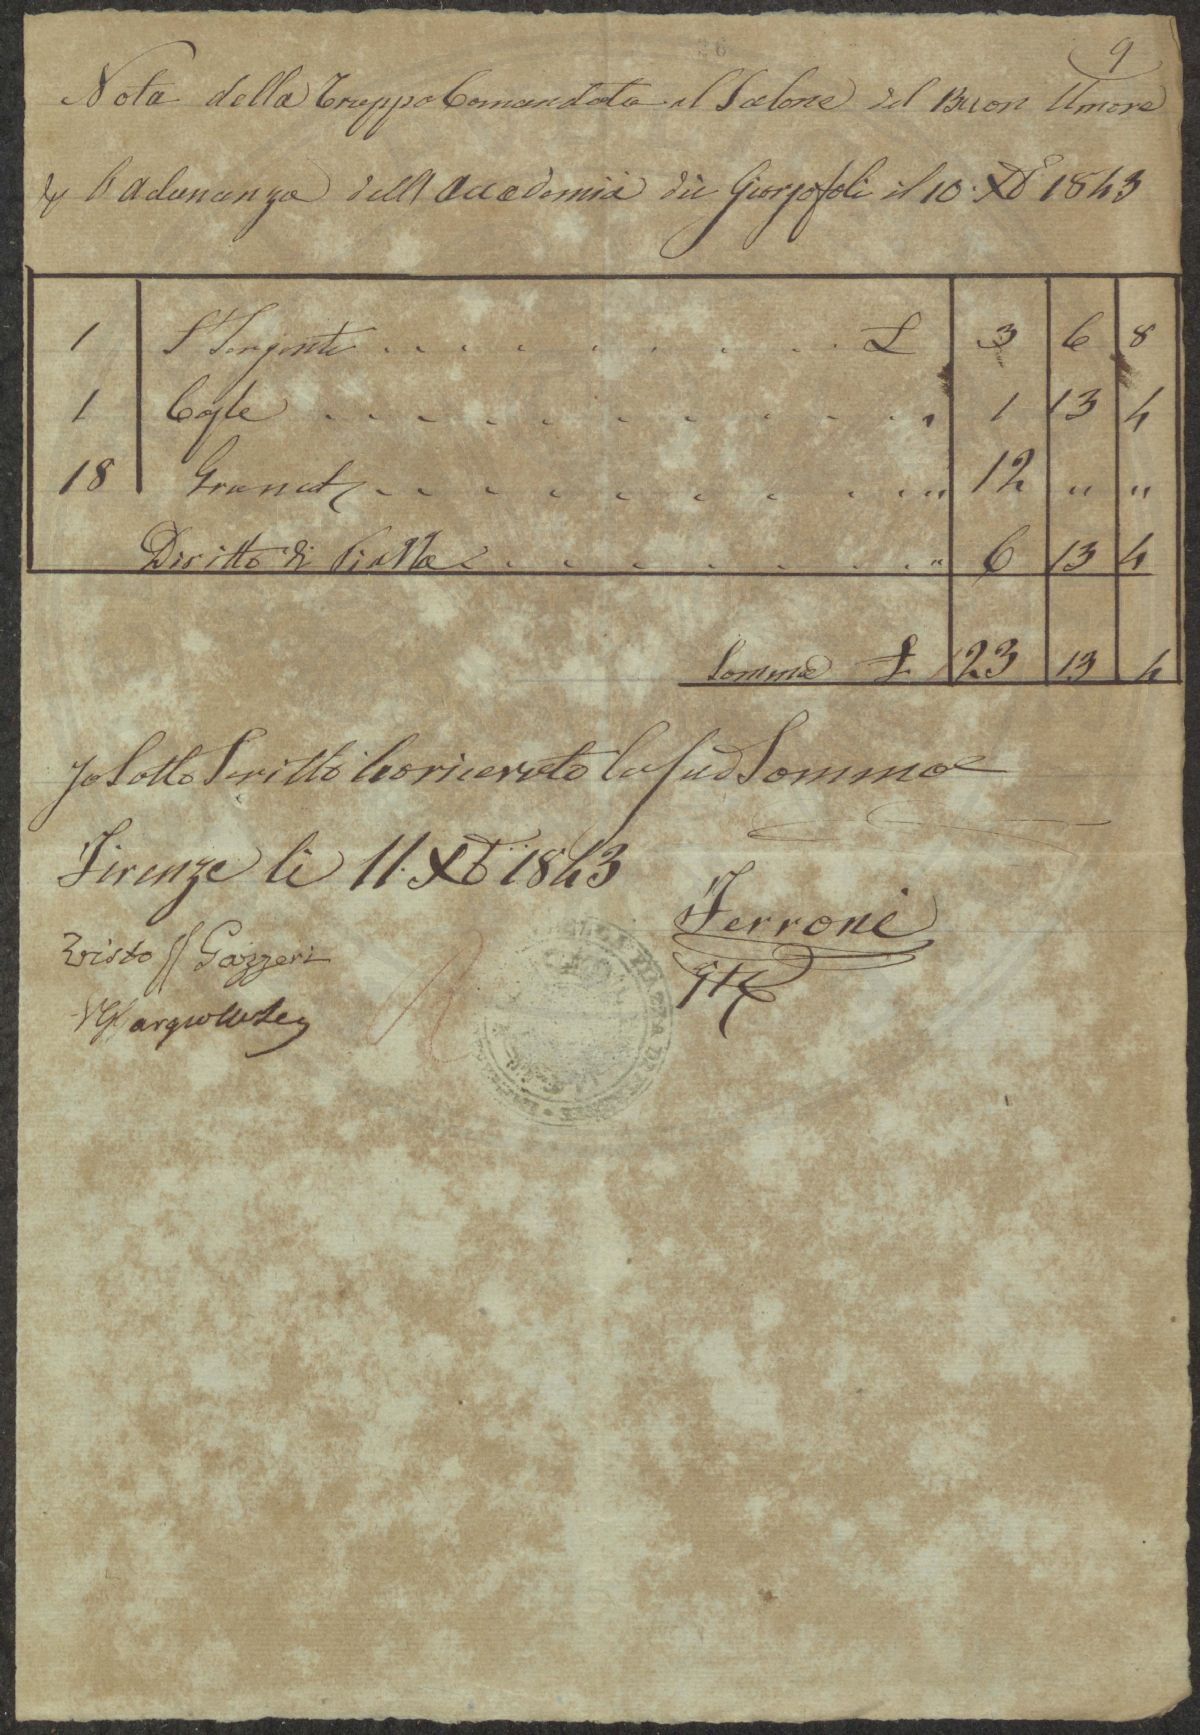 9
Nota della Truppa Comandata al Salone del Buon Umore
p l'Adunanza dell Accademia dei Giorgofoli il 10. Xbe 1843
1 S Sergente £ 3 6 8
1 Caple " 1 13 4
18 Granat " 12 " "
Diritto di Piazza " 6 13 4
Somma £ 23 13 4
Jo Sotto Scritto ho ricevuto la sud Somma
Firenze li 11. Xb 1843
Ferroni
Visto Gazzeri